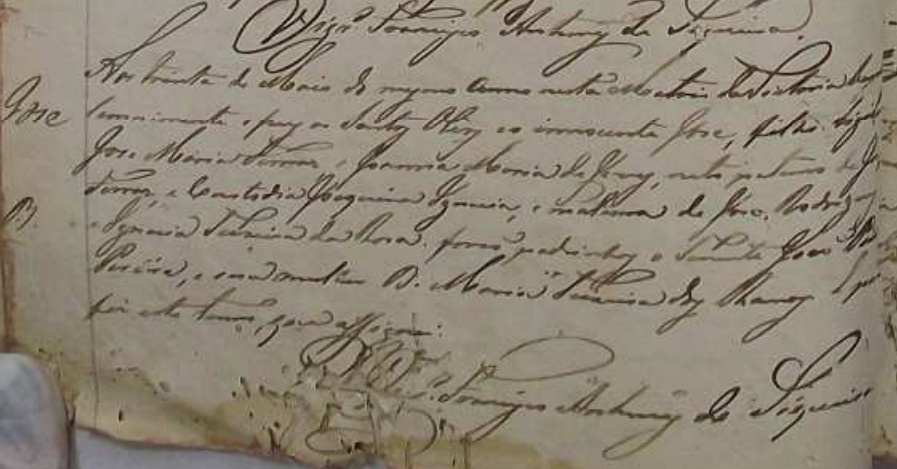 Vigrº Domingos Antunes de Siqueira.
José
Aos trinta de Maio do mesmo anno nesta Matriz da Victoria
solemnemente e puz os Santos Oleos ao innocente José, filho
José Maria Torres, e Joanna Maria de Jesus, neto paterno de
Torres, e Custodia Joaquina Ignacia, e materno de José Rodrigues
e Ignacia Teixeira da Rosa. forão padrinhos o Tenente João
Pereira, e sua mulher D. Maria Teixeira dos
fiz este termo, que assignei:
Domingos Antunes de Siqueira